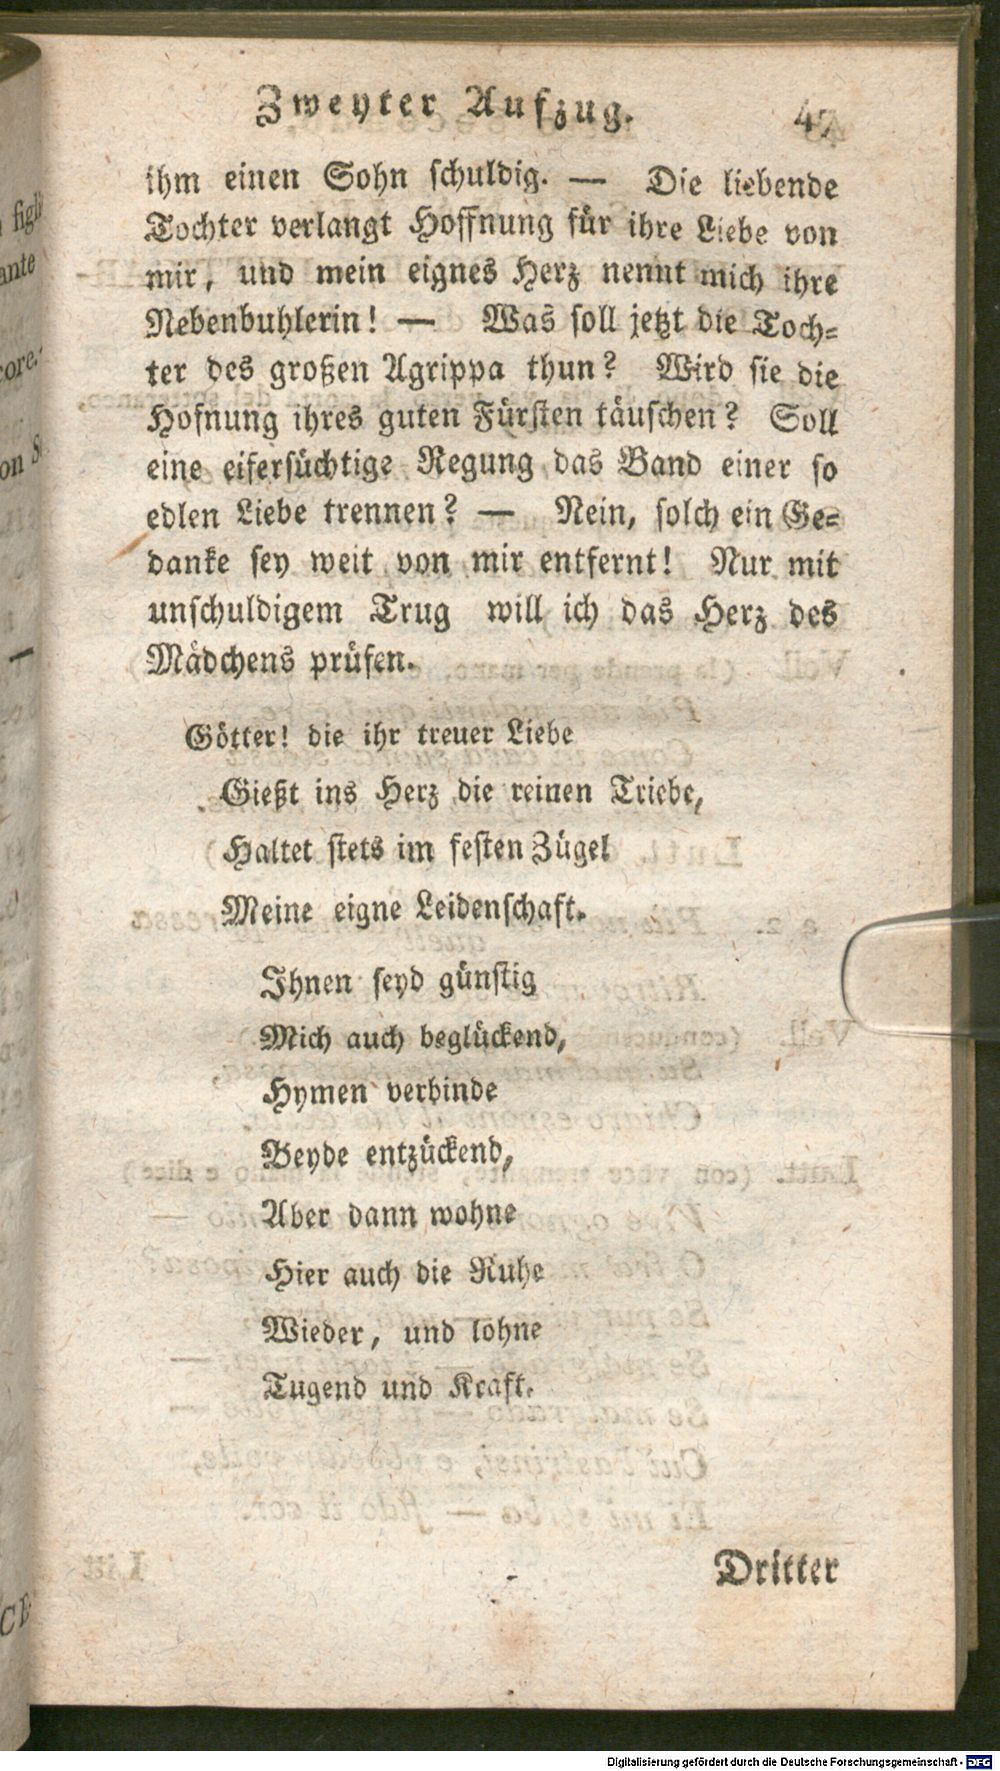 Zweyter Aufzug. 47
ihm einen Sohn schuldig. — Die liebende
Tochter verlangt Hoffnung für ihre Liebe von
mir, und mein eignes Herz nennt mich ihre
Nebenbuhlerin! — Was soll jetzt die Toch-
ter des großen Agrippa thun? Wird sie die
Hofnung ihres guten Fürsten täuschen? Soll
eine eifersüchtige Regung das Band einer so
edlen Liebe trennen? — Nein, solch ein Ge-
danke sey weit von mir entfernt! Nur mit
unschuldigem Trug will ich das Herz des
Mädchens prüfen.
Götter! die ihr treuer Liebe
Gießt ins Herz die reinen Triebe,
Haltet stets im festen Zügel
Meine eigne Leidenschaft.
Ihnen seyd günstig
Mich auch beglückend,
Hymen verbinde
Beyde entzückend,
Aber dann wohne
Hier auch die Ruhe
Wieder, und lohne
Tugend und Kraft.
Dritter
Digitalisierung gefördert durch die Deutsche Forschungsgemeinschaft - DFG